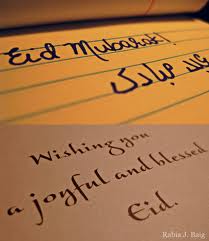 Eid Mubarak!
عید مبارک
Wishing you
a joyful and blessed
Eid.
Rabia J. Baig